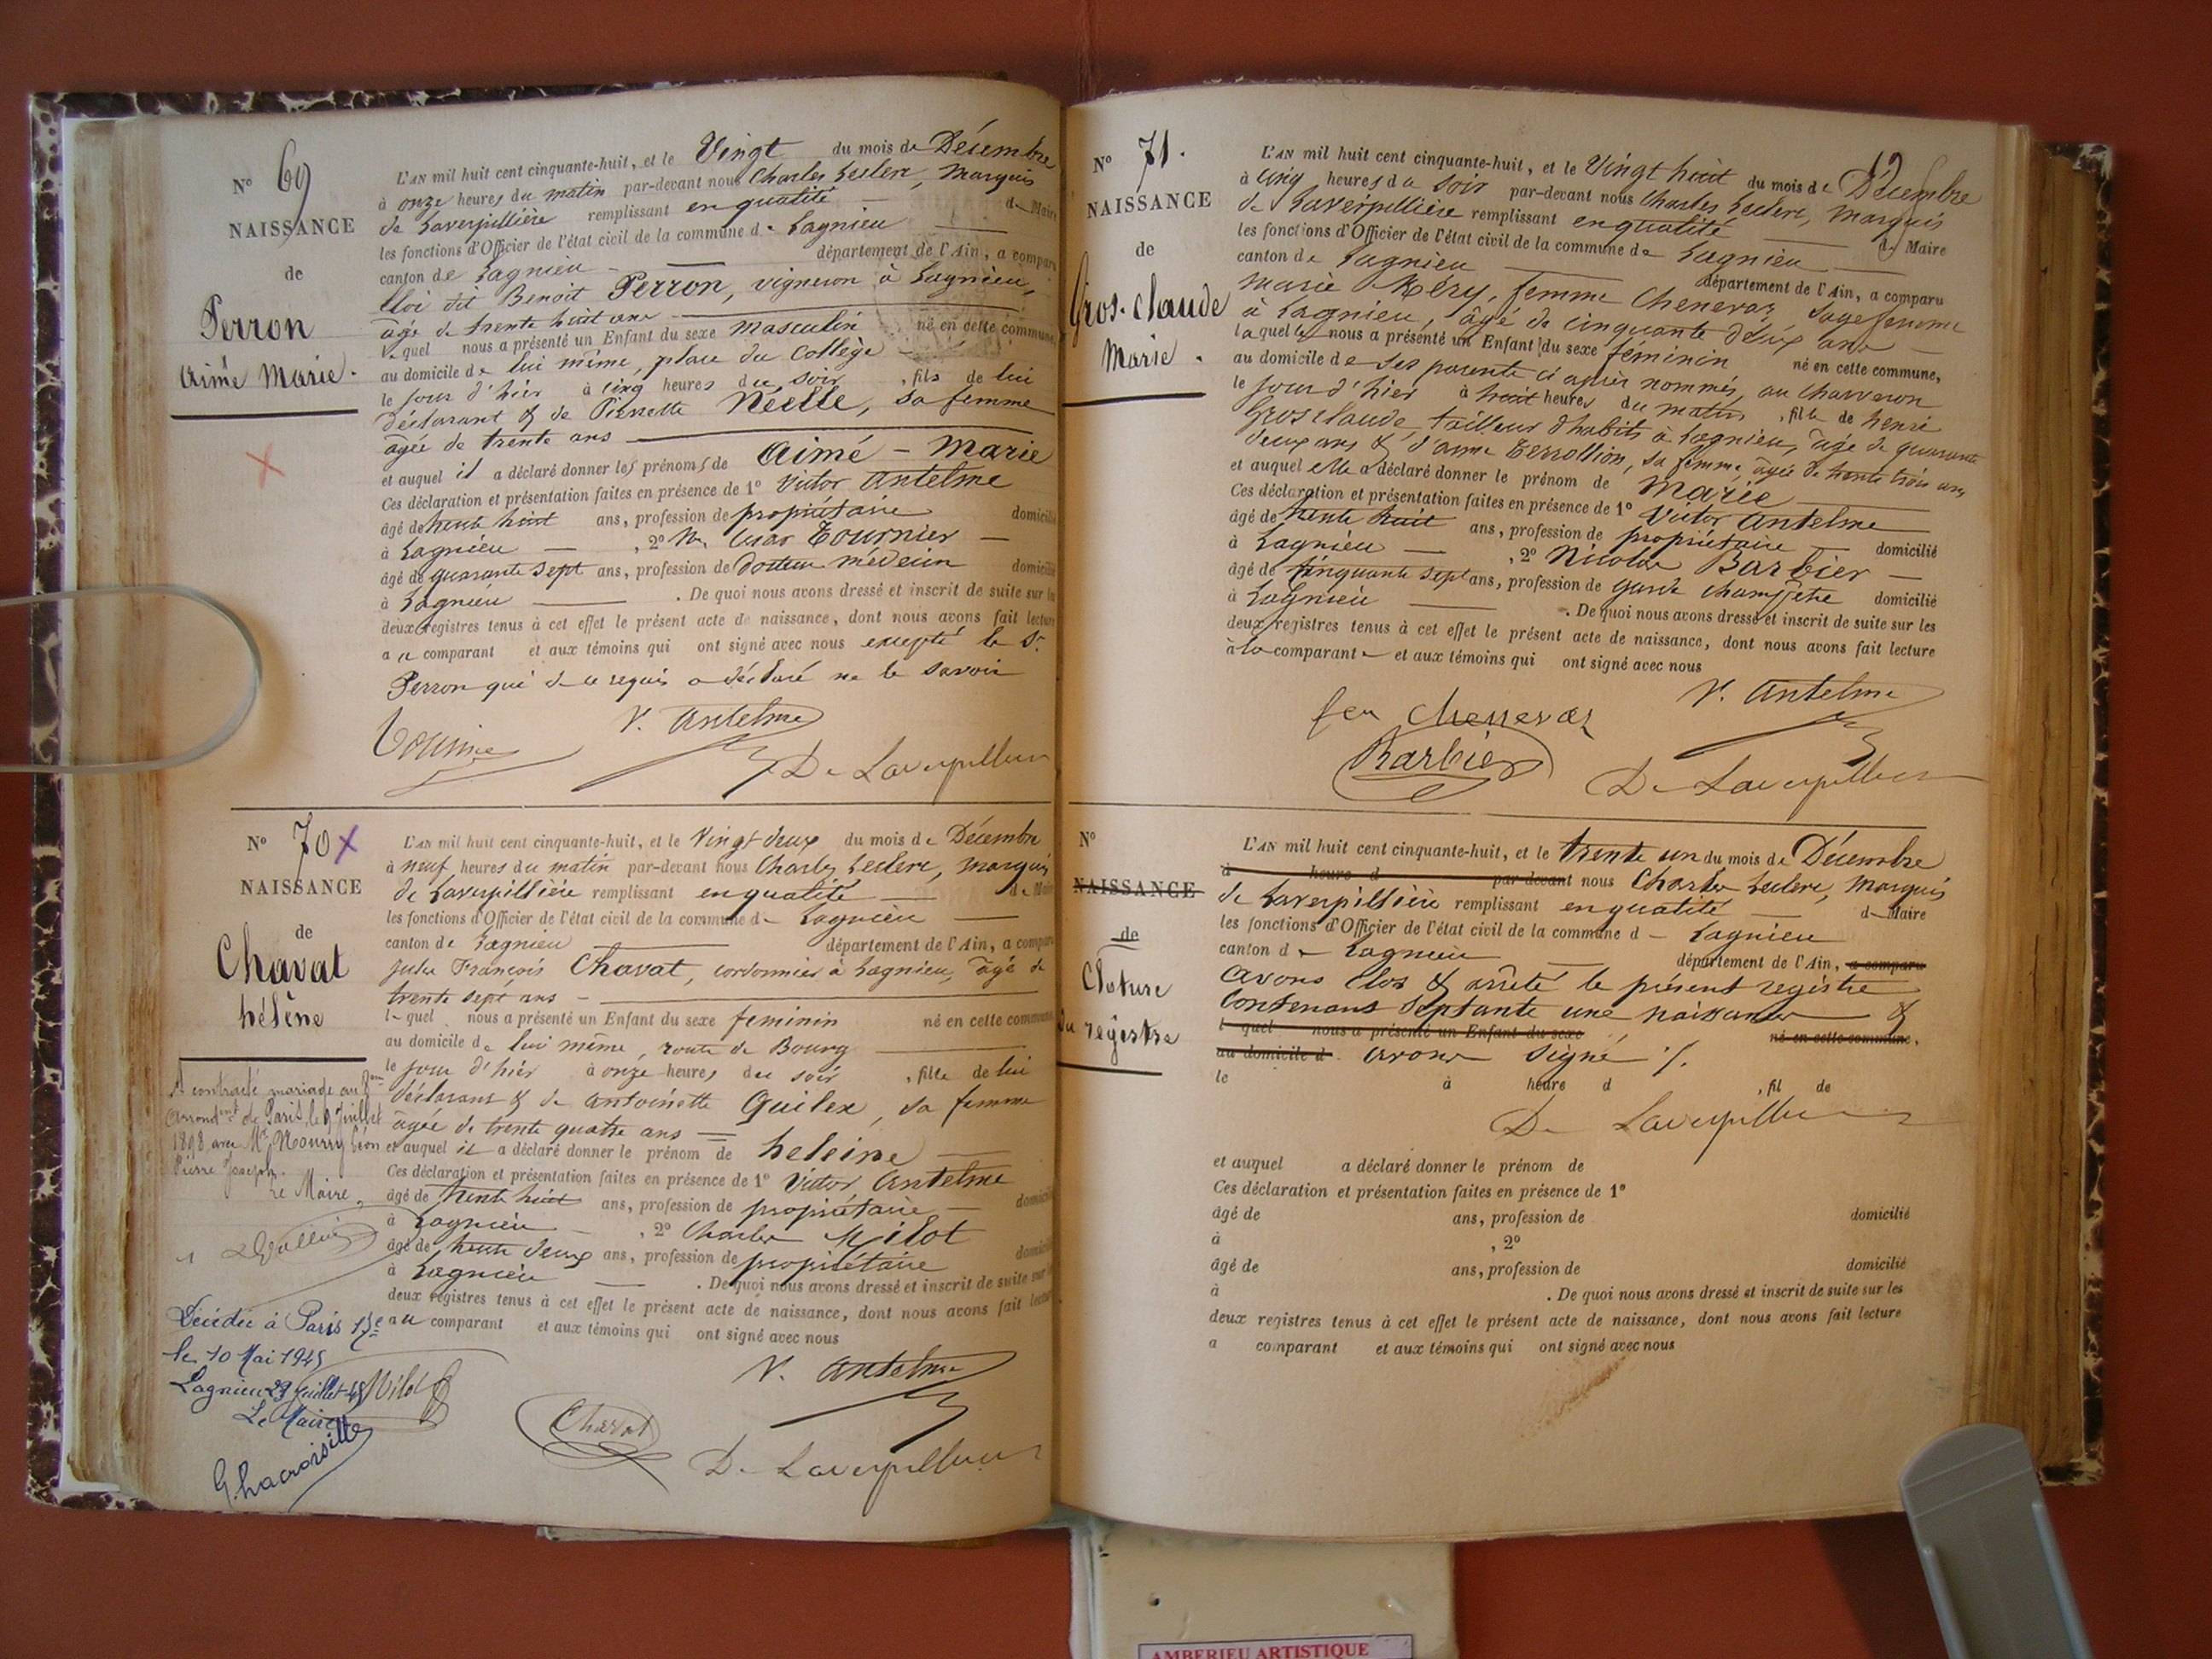 N° 69
NAISSANCE
de
Perron
Aimé Marie.
L'AN mil huit cent cinquante-huit, et le Vingt du mois de Décembre
à onze heures du matin par-devant nous Charles Leclerc, Marquis
de Laverpillière remplissant en qualité de Maire
les fonctions d'Officier de l'état civil de la commune de Lagnieu
canton de Lagnieu département de l'Ain, a comparu
dit Benoit Perron, vigneron à Lagnieu,
âgé de trente huit ans
lequel nous a présenté un Enfant du sexe masculin né en cette commune,
au domicile de lui même, place du Collège
le jour d'hier à cinq heures du soir, fils de lui
déclarant & de Pierrette Neelle, sa femme
âgée de trente ans
et auquel il a déclaré donner les prénoms de Aimé - Marie
Ces déclaration et présentation faites en présence de 1° Victor Antelme
âgé de trente huit ans, profession de propriétaire domicilié
à Lagnieu , 2° Mr. César Tournier
âgé de quarante sept ans, profession de docteur médecin domicilié
à Lagnieu . De quoi nous avons dressé et inscrit de suite sur les
deux registres tenus à cet effet le présent acte de naissance, dont nous avons fait lecture
au comparant et aux témoins qui ont signé avec nous excepté le Sr
Perron qui de ce requis a déclaré ne le savoir
V. Antelme
Tournier
De Laverpillière
N° 70 X
NAISSANCE
de
Chavat
hélène
L'AN mil huit cent cinquante-huit, et le Vingt deux du mois de Décembre
à neuf heures du matin par-devant nous Charles Leclerc, Marquis
de Laverpillière remplissant en qualité de Maire
les fonctions d'Officier de l'état civil de la commune de Lagnieu
canton de Lagnieu département de l'Ain, a comparu
Jules François Chavat, cordonnier à Lagnieu, âgé de
trente sept ans
lequel nous a présenté un Enfant du sexe feminin né en cette commune,
au domicile de lui même, route de Bourg
le jour d'hier à onze heures du soir, fille de lui
déclarant & de Antoinette Quilex, sa femme
âgée de trente quatre ans
et auquel il a déclaré donner le prénom de heleine
Ces déclaration et présentation faites en présence de 1° Victor Antelme
âgé de trente huit ans, profession de propriétaire domicilié
à Lagnieu , 2° Charles Milot
âgé de trente deux ans, profession de propriétaire domicilié
à Lagnieu . De quoi nous avons dressé et inscrit de suite sur les
deux registres tenus à cet effet le présent acte de naissance, dont nous avons fait lecture
au comparant et aux témoins qui ont signé avec nous
A contracté mariage au 8ème
arrondmt de Paris, le 9 Juillet
1898 avec Mr Nourry Léon
Pierre Joseph.
Le Maire,
Décédée à Paris 15e
le 10 Mai 1945
Lagnieu 23 Juillet 45
Le Maire
GLacroisille
Milot
V. Antelme
Chavat
De Laverpillière
N° 71.
NAISSANCE
de
Gros-claude
Marie.
12
L'AN mil huit cent cinquante-huit, et le Vingt huit du mois de Décembre
à cinq heures du soir par-devant nous Charles Leclerc, Marquis
de Laverpillière remplissant en qualité de Maire
les fonctions d'Officier de l'état civil de la commune de Lagnieu
canton de Lagnieu département de l'Ain, a comparu
Marie Mery, femme Chenevaz sage femme
à Lagnieu, âgé de cinquante deux ans
laquelle nous a présenté un Enfant du sexe féminin né en cette commune,
au domicile de ses parents ci après nommés, au Charveron
le jour d'hier à huit heures du matin, fille de henri
Grosclaude tailleur d'habits à Lagnieu, âgé de quarante
deux ans & d'anne Terrollion, sa femme, âgée de trente trois ans,
et auquel elle a déclaré donner le prénom de Marie
Ces déclaration et présentation faites en présence de 1° Victor Antelme
âgé de trente huit ans, profession de propriétaire domicilié
à Lagnieu , 2° Nicolas Barbier
âgé de cinquante sept ans, profession de garde champêtre domicilié
à Lagnieu . De quoi nous avons dressé et inscrit de suite sur les
deux registres tenus à cet effet le présent acte de naissance, dont nous avons fait lecture
à la comparante et aux témoins qui ont signé avec nous
V. Antelme
fe Chenevaz
Barbier
De Laverpillière
N°
NAISSANCE
de
Cloture
du registre
L'AN mil huit cent cinquante-huit, et le trente un du mois de Décembre
à heure d par-devant nous Charles Leclerc, Marquis
de Laverpillière remplissant en qualité de Maire
les fonctions d'Officier de l'état civil de la commune de Lagnieu
canton de Lagnieu département de l'Ain, a comparu
avons clos & arrêté le présent registre
contenant septante une naissances &
l quel nous a présenté un Enfant du sexe né en cette commune,
au domicile d avons signé ./.
le à heure d , fil de
De Laverpillière
et auquel a déclaré donner le prénom de
Ces déclaration et présentation faites en présence de 1°
âgé de ans, profession de domicilié
à , 2°
âgé de ans, profession de domicilié
à . De quoi nous avons dressé et inscrit de suite sur les
deux registres tenus à cet effet le présent acte de naissance, dont nous avons fait lecture
a comparant et aux témoins qui ont signé avec nous
AMBERIEU ARTISTIQUE